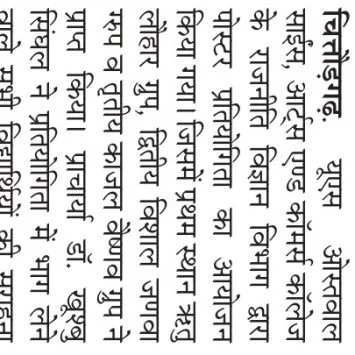 चित्तौड़गढ़. यूएम ओस्तवाल
साईंस, आर्ट्स एण्ड कॉमर्स कॉलेज
के राजनीति विज्ञान विभाग द्वारा
पोस्टर प्रतियोगिता का आयोजन
किया गया। जिसमें प्रथम स्थान ऋतु
लौहार ग्रुप, द्वितीय विशाल जणवा
ग्रुप व तृतीय काजल वैष्णव ग्रुप ने
प्राप्त किया। प्रचार्या डॉ. खुश्बु
सिंघल ने प्रतियोगिता में भाग लेने
वाले सभी विद्यार्थियों की सराहना